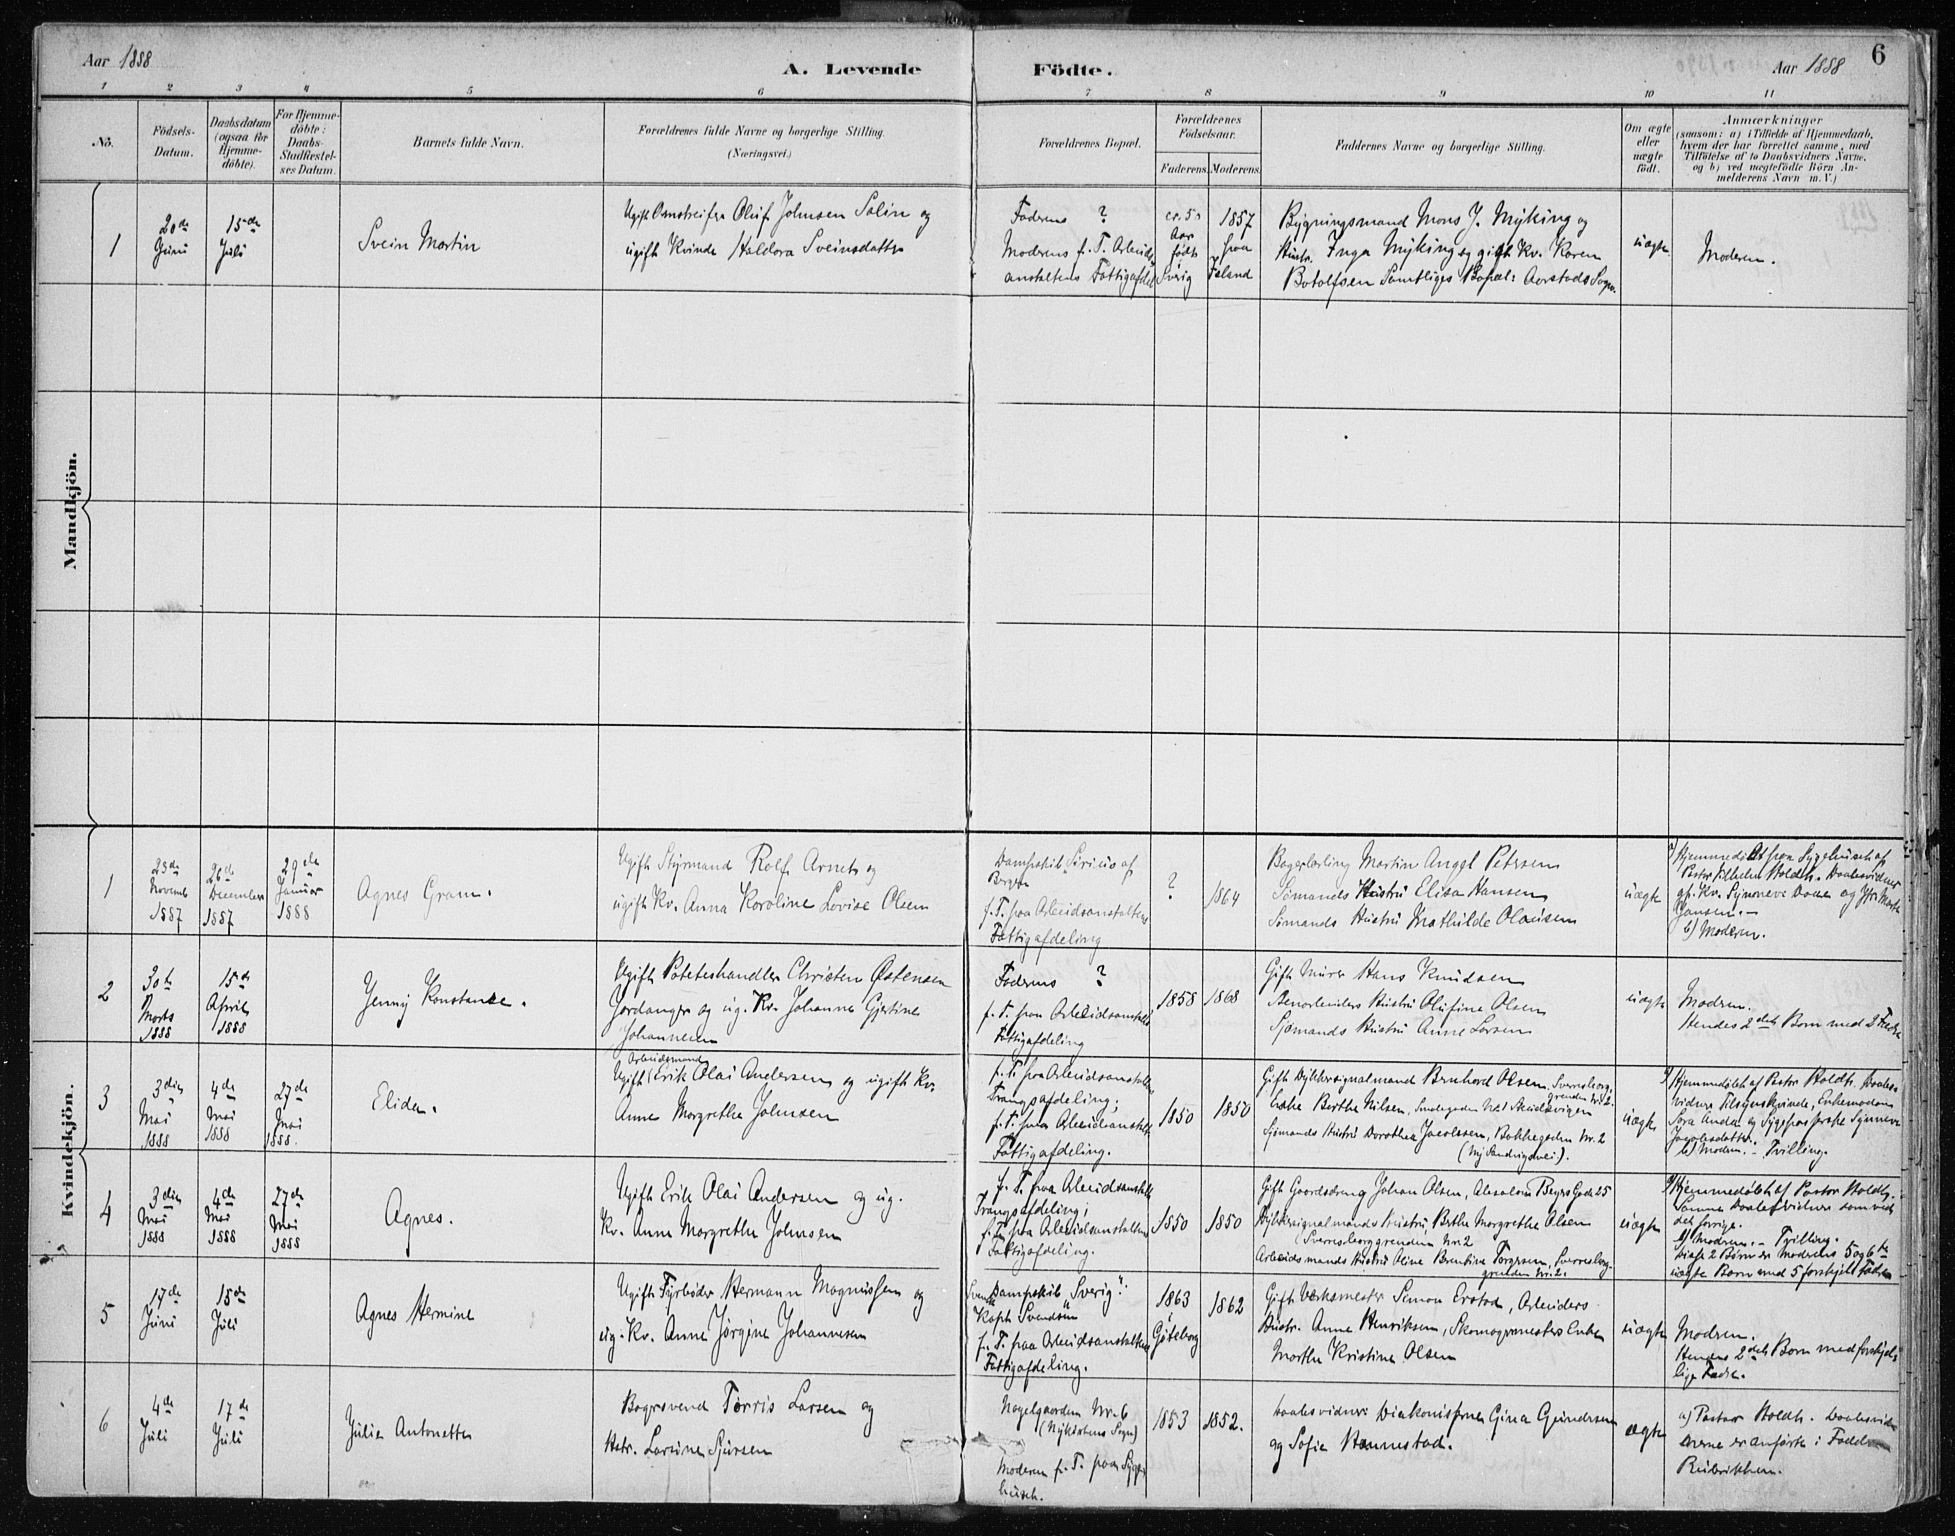 6
Aar 1888
A. Levende Födte.
Aar 1888
1 2 3 4 5 6 7 8 9 10 11
No.
Födsels-
Datum.
Daabsdatum
(ogsaa for
Hjemme-
döbte).
For Hjemme-
döbte:
Daabs-
Stadfæstel-
ses Datum.
Barnets fulde Navn.
Forældrenes fulde Navne og borgerlige Stilling.
(Næringsvei.)
Forældrenes Bopæl.
Forældrenes
Födselsaar.
Faderens. Moderens.
Faddernes Navne og borgerlige Stilling.
Om ægte
eller
uægte
födt.
Anmærkninger
(saasom: a) i Tilfælde af Hjemmedaab,
hvem der har forrettet samme, med
Tilföielse af to Daabsvidners Navne,
og b) ved uægtefödte Börn An-
melderens Navn m. V.)
Mandkjön.
1
20de
Juni
15de
Juli
Svein Martin
Ugift Omstreifer Oluf Johnsen Salin og
ugift Kvinde Haldora Sveinsdatter
Faderens ?
Moderens f. T. Arbeids-
anstaltens Fattigafdel.
cr. 50
Aar
født
i Sverig
1857
fra
Island
Bygningsmand Mons J. Myking og
Hustr. Inga Myking og gift Kv. Karen
Botolfsen Samtliges Bopæl: Aarstads Sogn.
uægte
Moderen.
Kvindekjön.
1
23de
Novemb
1887
26de
December
1887
29de
Januar
1888
Agnes Gram.
Ugift Styrmand Rolf Arnet og
ugift Kv. Anna Karoline Lovise Olsen
Dampskib Sirius af
Bergen
f. T. paa Arbeidsanstaltens
Fattigafdeling
?
1864
Bagerlærling Martin Angel Petersen
Sømands Hustru Elisa Hansen
Sømands Hustru Mathilde Olausen
uægte
Hjemmedøbt paa Sygehuset af
Pastor Holdt. Daabsvidner
gf. Kv. Synneve
Jansen.-
b) Moderen.
2
30te
Marts
1888
15de
April
1888
Jenny Konstanse.
Ugift Poteteshandler Christen Østensen
Jordanger og ug. Kv. Johanne Gjertine
Johannesen
Faderens ?
f. T. paa Arbeidsanstaltens
Fattigafdeling
1858
1868
Gift Murer Hans Knudsen
Hustru Olufine Olsen
Sjømands Hustru Anne Larsen
uægte
Modren.
Hendes 2det Barn med 2 Fædre
3
3die
Mai
1888
4de
Mai
1888
27de
Mai
1888.
Eliden.
Arbeidsmand
Ugift Erik Olai Andersen og ugift Kv.
Anne Margrethe Johnsen
f. T. paa Arbeidsanstaltens
Tvangsafdeling;
f. T. paa Arbeidsanstalt.
Fattigafdeling.
1850
1850
Gift Dykkersignalmand Bernhard Olsen, Sverresborg-
grenden Nr. 2.
Enke Berthe Nilsen,
Sjømands Hustru Dorothea Jacobsen, Bakkegaden Nr. 2
(Ny Sandvigsvei).
uægte
Hjemmedøbt af Pastor Holdt. Daabs-
vidner Tilsynskvinde, Enkemadam
Sara Andal og Sygepasserske Synneve
Jacobsdatter.
b) Modren. - Tvilling.
4
3die
Mai
1888
4de
Mai
1888
27de
Mai
1888
Agnes.
Ugift Erik Olai Andersen og ug.
Kv. Anne Margrethe Johnsen
f. T. paa Arbeidsanstalt
Tvangsafdeling;
f. T. paa Arbeidsanstaltens
Fattigafdeling.
1850
1850
Gift Gaardsdreng Johan Olsen, Absalon Beyers Gade 25
Dykkersignalmands Hustru Berthe Margrethe Olsen
(Sverresborggrenden Nr. 2
Arbeidsmands Hustru Oline Berntine Torgersen, Sverresborg-
grenden Nr. 2.
uægte
Hjemmedøbt af Pastor Holdt.
Samme Daabsvidner som ved
det forrige.
b) Modren. - Tvilling.
Disse 2 Børn er Moderens 5 og 6te
uægte Barn med 5 forskjell. Fædre
5
17de
Juni
15de
Juli
Agnes Hermine
Ugift Fyrbøder Hermann Magnussen og
ug. Kv. Anne Jørgine Johannesen
Svensk Dampskib "Sverig"?
Kapt. Svendsen
f. T. paa Arbeidsanstaltens
Fattigafdeling.
1863
Gøteborg
1862
Gift Værksmester Simon Erstad, Arbeiders
Hustr. Anne Henriksen, Skomagermesters Enke
Marthe Kristine Olsen
uægte
Modren.
Hendes 2det Barn med forskjel-
lige Fædre.
6
4de
Juli
17de
Juli
Julie Antonette
Bagersvend Torris Larsen og
Hstr. Larsine Sjursen
Nagelgaarden Nr. 6
(Nykirkens Sogn)
Moderen f. T. paa Syge-
huset.
1853
1852.
Daabsvidner: Diakonisserne Gina Gundersen
og Sofie Hannestad.
ægte
a) Pastor Holdt. Daabsvid-
nerne er anførte i Fadder-
Rubrikken.